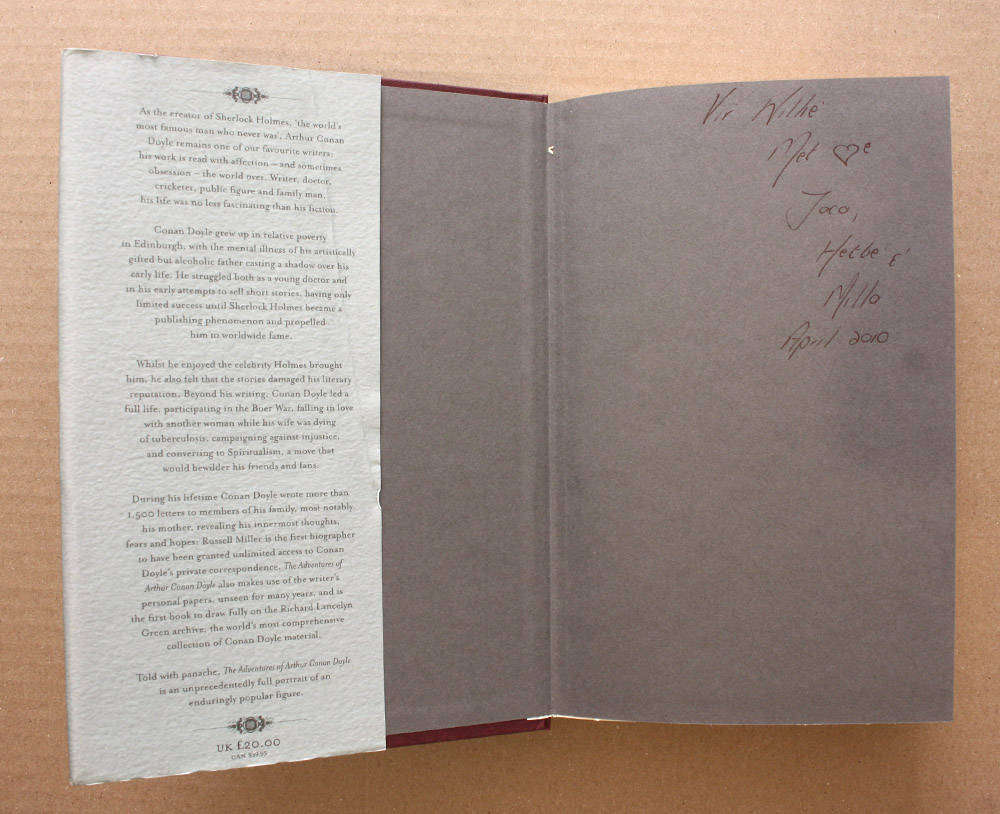 As the creator of Sherlock Holmes, 'the world's
most famous man who never was', Arthur Conan
Doyle remains one of our favourite writers;
his work is read with affection – and sometimes
obsession – the world over. Writer, doctor,
cricketer, public figure and family man,
his life was no less fascinating than his fiction.
Conan Doyle grew up in relative poverty
in Edinburgh, with the mental illness of his artistically
gifted but alcoholic father casting a shadow over his
early life. He struggled both as a young doctor and
in his early attempts to sell short stories, having only
limited success until Sherlock Holmes became a
publishing phenomenon and propelled
him to worldwide fame.
Whilst he enjoyed the celebrity Holmes brought
him, he also felt that the stories damaged his literary
reputation. Beyond his writing, Conan Doyle led a
full life, participating in the Boer War, falling in love
with another woman while his wife was dying
of tuberculosis, campaigning against injustice,
and converting to Spiritualism, a move that
would bewilder his friends and fans.
During his lifetime Conan Doyle wrote more than
1,500 letters to members of his family, most notably
his mother, revealing his innermost thoughts,
fears and hopes; Russell Miller is the first biographer
to have been granted unlimited access to Conan
Doyle's private correspondence. The Adventures of
Arthur Conan Doyle also makes use of the writer's
personal papers, unseen for many years, and is
the first book to draw fully on the Richard Lancelyn
Green archive, the world's most comprehensive
collection of Conan Doyle material.
Told with panache, The Adventures of Arthur Conan Doyle
is an unprecedentedly full portrait of an
enduringly popular figure.
UK £20.00
CAN
Vir Willie
Met ♡e
Jaco,
&
Milla
April 2010